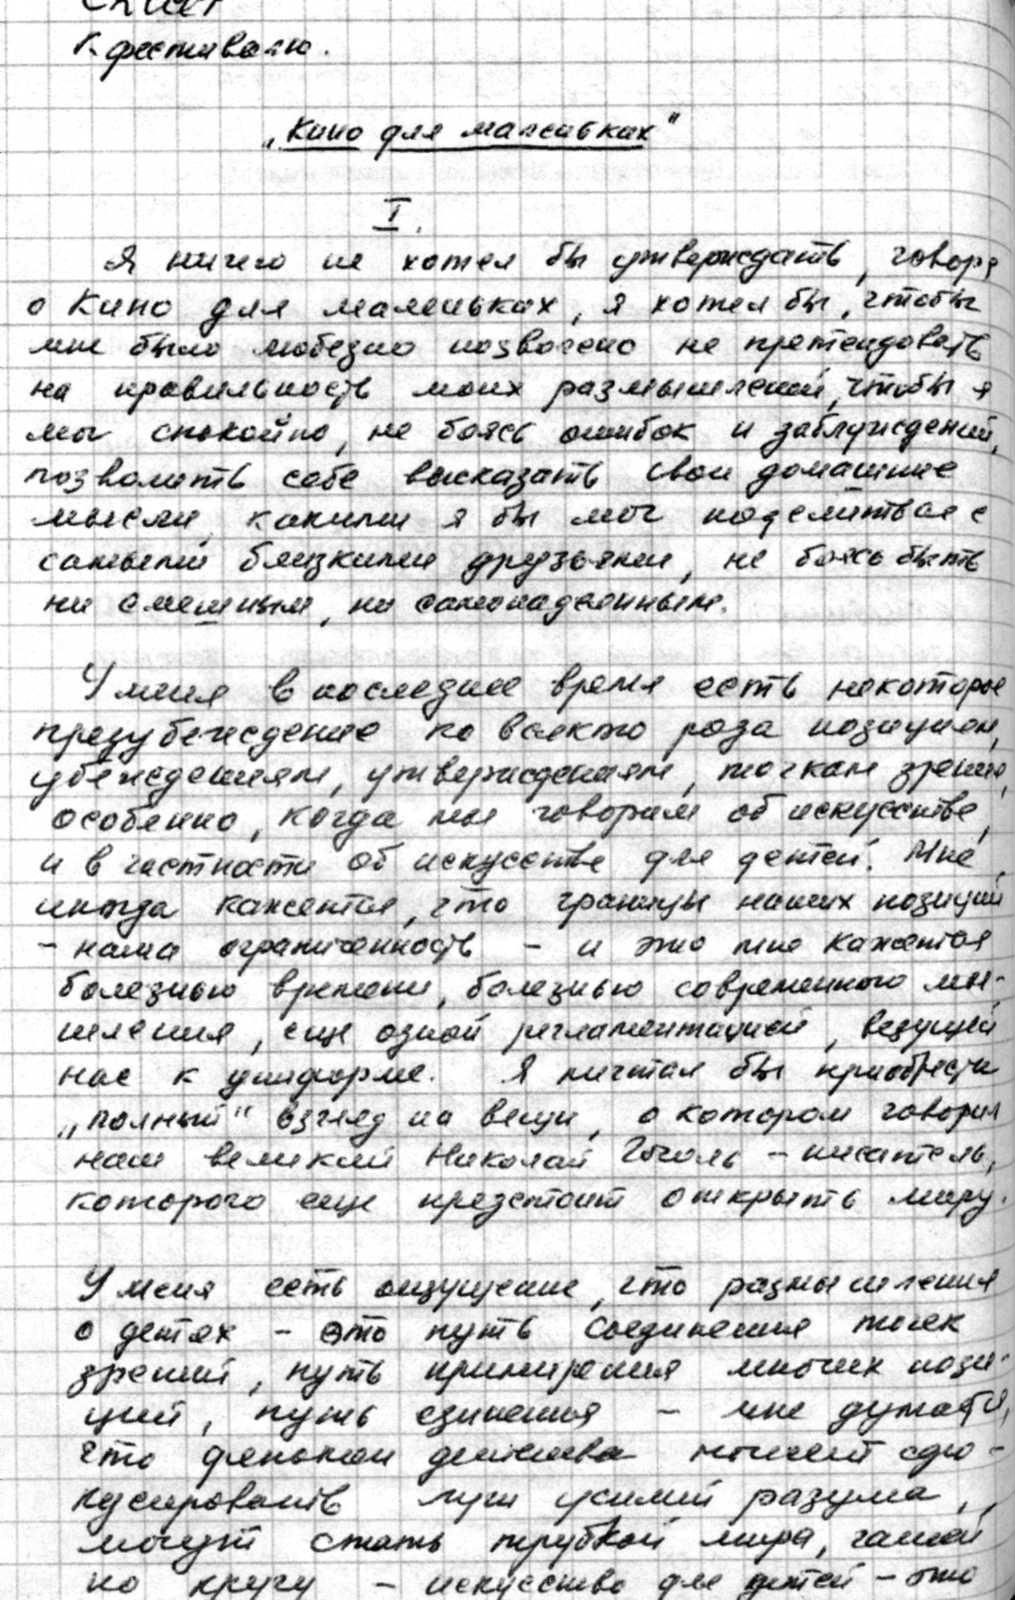 К фестивалю.
„Кино для маленьких"
I.
Я ничего не хотел бы утверждать, говоря
о Кино для маленьких, я хотел бы, чтобы
мне было любезно позволено не претендовать
на правильность моих размышлений, чтобы я
мог спокойно, не боясь ошибок и заблуждений,
позволить себе высказать свои домашние
мысли, какими я бы мог поделиться с
самыми близкими друзьями, не боясь быть
ни смешным, ни самонадеянным.
У меня в последнее время есть некоторое
предубеждение ко всякого рода позициям,
убеждениям, утверждениям, точкам зрения,
особенно, когда мы говорим об искусстве,
и в частности об искусстве для детей. Мне
иногда кажется, что границы наших позиций
– наша ограниченность – и это мне кажется
болезнью времени, болезнью современного мы-
шления, еще одной регламентацией, ведущей
нас к униформе. Я мечтал бы приобрести
„полный" взгляд на вещи, о котором говорил
наш великий Николай Гоголь – писатель,
которого еще предстоит открыть миру.
У меня есть ощущение, что размышления
о детях – это путь соединения точек
зрений, путь примирения многих пози-
ций, путь единенья – мне думается,
что феномен детства может сфо-
кусировать лучи усилий разума,
могут стать трубкой мира, чашей
по кругу – искусство для детей – это